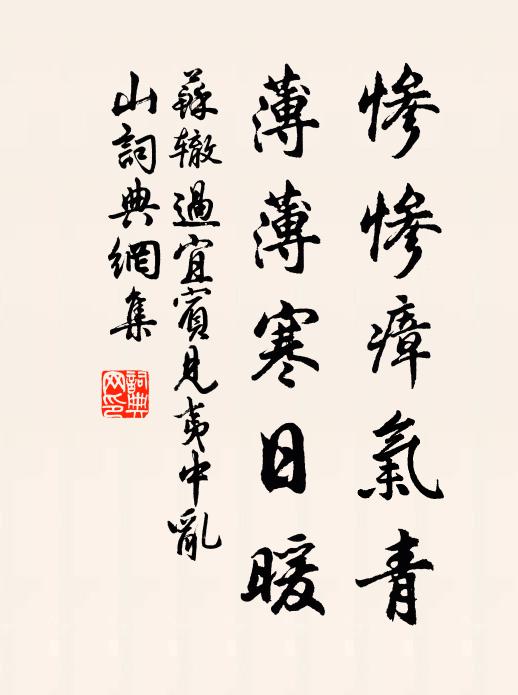 慘慘瘴氣青
薄薄寒日暖
蘇轍過宜賓見夷中亂
山詞典網集
詞典網印